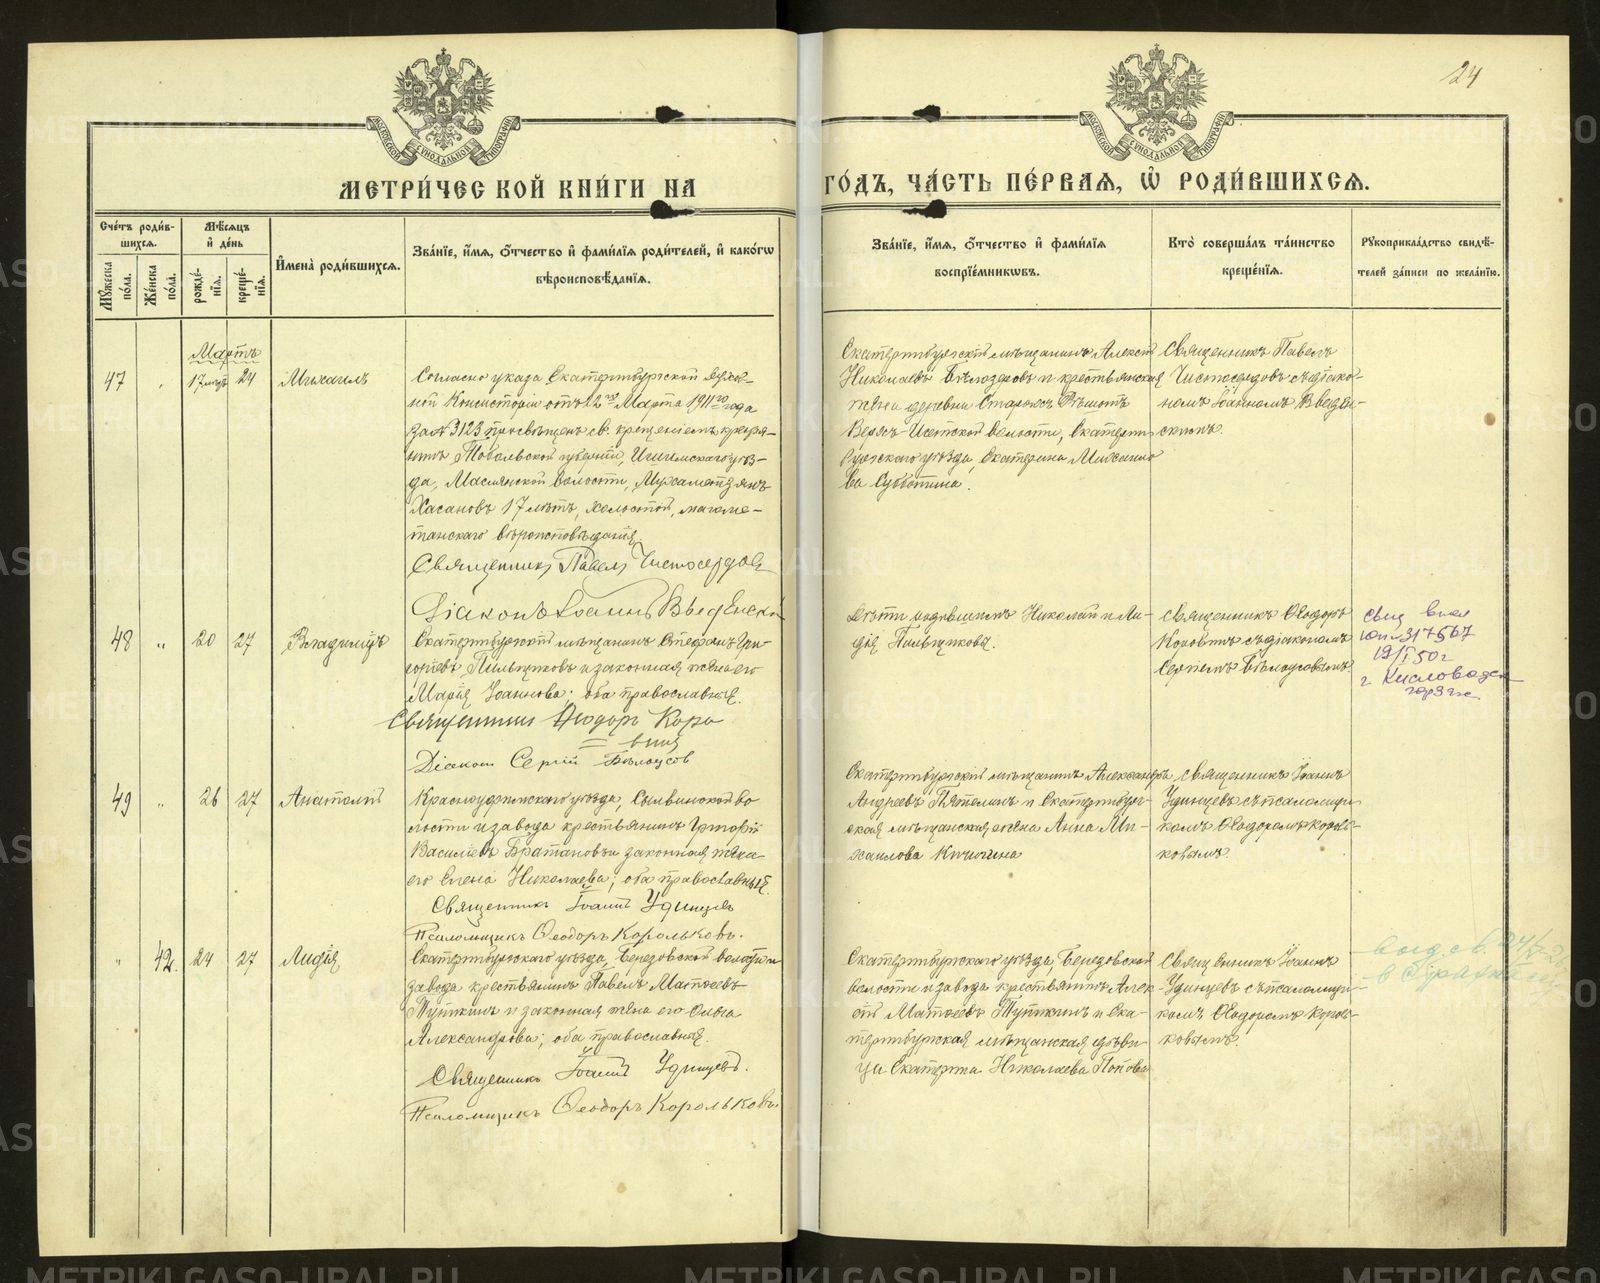 24
МЕТРИЧЕСКОЙ КНИГИ НА
ГОДЪ, ЧАСТЬ ПЕРВАЯ, Ѡ РОДИВШИХСЯ.
Счетъ родив-
шихся.
Мужеска пола.
Женска пола.
Мѣсяцъ
и день
рожденія.
крещенія.
Имена родившихся.
Званіе, имя, отчество и фамилія родителей, и какогѡ
вѣроисповѣданія.
Званіе, имя, отчество и фамилія
воспріемникѡвъ.
Кто совершалъ таинство
крещенія.
Рукоприкладство свидѣ-
телей записи по желанію.
Мартъ
47 " 17 лѣтъ 24 Михаилъ
Согласно указа Екатеринбургской Духов-
ной Консисторіи отъ 12го Марта 1911го года
за № 3123 просвѣщенъ св. крещеніемъ крестья-
нинъ Тобольской губерніи, Ишимскаго уѣз-
да, Маслянской волости, Мухаметзянъ
Хасановъ 17 лѣтъ, холостой, магоме-
танскаго вѣроисповѣданія.
Священникъ Павелъ Чистосердовъ
Діаконъ Іоаннъ Введенскій
Екатеринбургскій мѣщанинъ Алексѣй
Николаевъ Бѣлоздровъ и крестьянская
жена деревни Старыхъ Рѣшотъ
Верхъ-Исетской волости, Екатерин-
бургскаго уѣзда, Екатерина Михаило-
ва Субботина.
Священникъ Павелъ
Чистосердовъ съ діако-
номъ Іоанномъ Введен-
скимъ.
48 " 20 27 Владиміръ
Екатеринбургскій мѣщанинъ Стефанъ Гри-
горьевъ Пильщиковъ и законная жена его
Марія Іоаннова; оба православные.
Священникъ Ѳеодоръ Коро
винъ
Діаконъ Сергій Бѣлоусовъ
Дѣти родившихъ Николай и Ли-
дія Пильщикова.
Священникъ Ѳеодоръ
Коровинъ съ діакономъ
Сергіемъ Бѣлоусовымъ.
317567
19/I 50 г
г Кисловодск
49 " 26 27 Анатолій
Красноуфимскаго уѣзда, Сылвинской во
лости и завода крестьянинъ Григорій
Василіевъ Братановъ и законная жена
его Елена Николаева; оба православные.
Священникъ Іоаннъ Удинцевъ
Псаломщикъ Ѳеодоръ Корольковъ.
Екатеринбургскій мѣщанинъ Александръ
Андреевъ Пятелинъ и Екатеринбург-
ская мѣщанская жена Анна Ми-
хаилова Кичигина
Священникъ Іоаннъ
Удинцевъ съ псаломщи-
комъ Ѳеодоромъ Король-
ковымъ.
" 42. 24 27 Лидія
Екатеринбургскаго уѣзда, Березовской волости и
завода крестьянинъ Павелъ Матѳеевъ
Пупкинъ и законная жена его Ольга
Александрова; оба православные.
Священникъ Іоаннъ Удинцевъ.
Псаломщикъ Ѳеодоръ Корольковъ.
Екатеринбургскаго уѣзда, Березовской
волости и завода крестьянинъ Алек-
сѣй Матѳеевъ Пупкинъ и Ека-
теринбургская мѣщанская дѣви-
ца Екатерина Николаева Попова
Священникъ Іоаннъ
Удинцевъ съ псаломщи-
комъ Ѳеодоромъ Король-
ковымъ.
METRIKI.GASO-URAL.RU